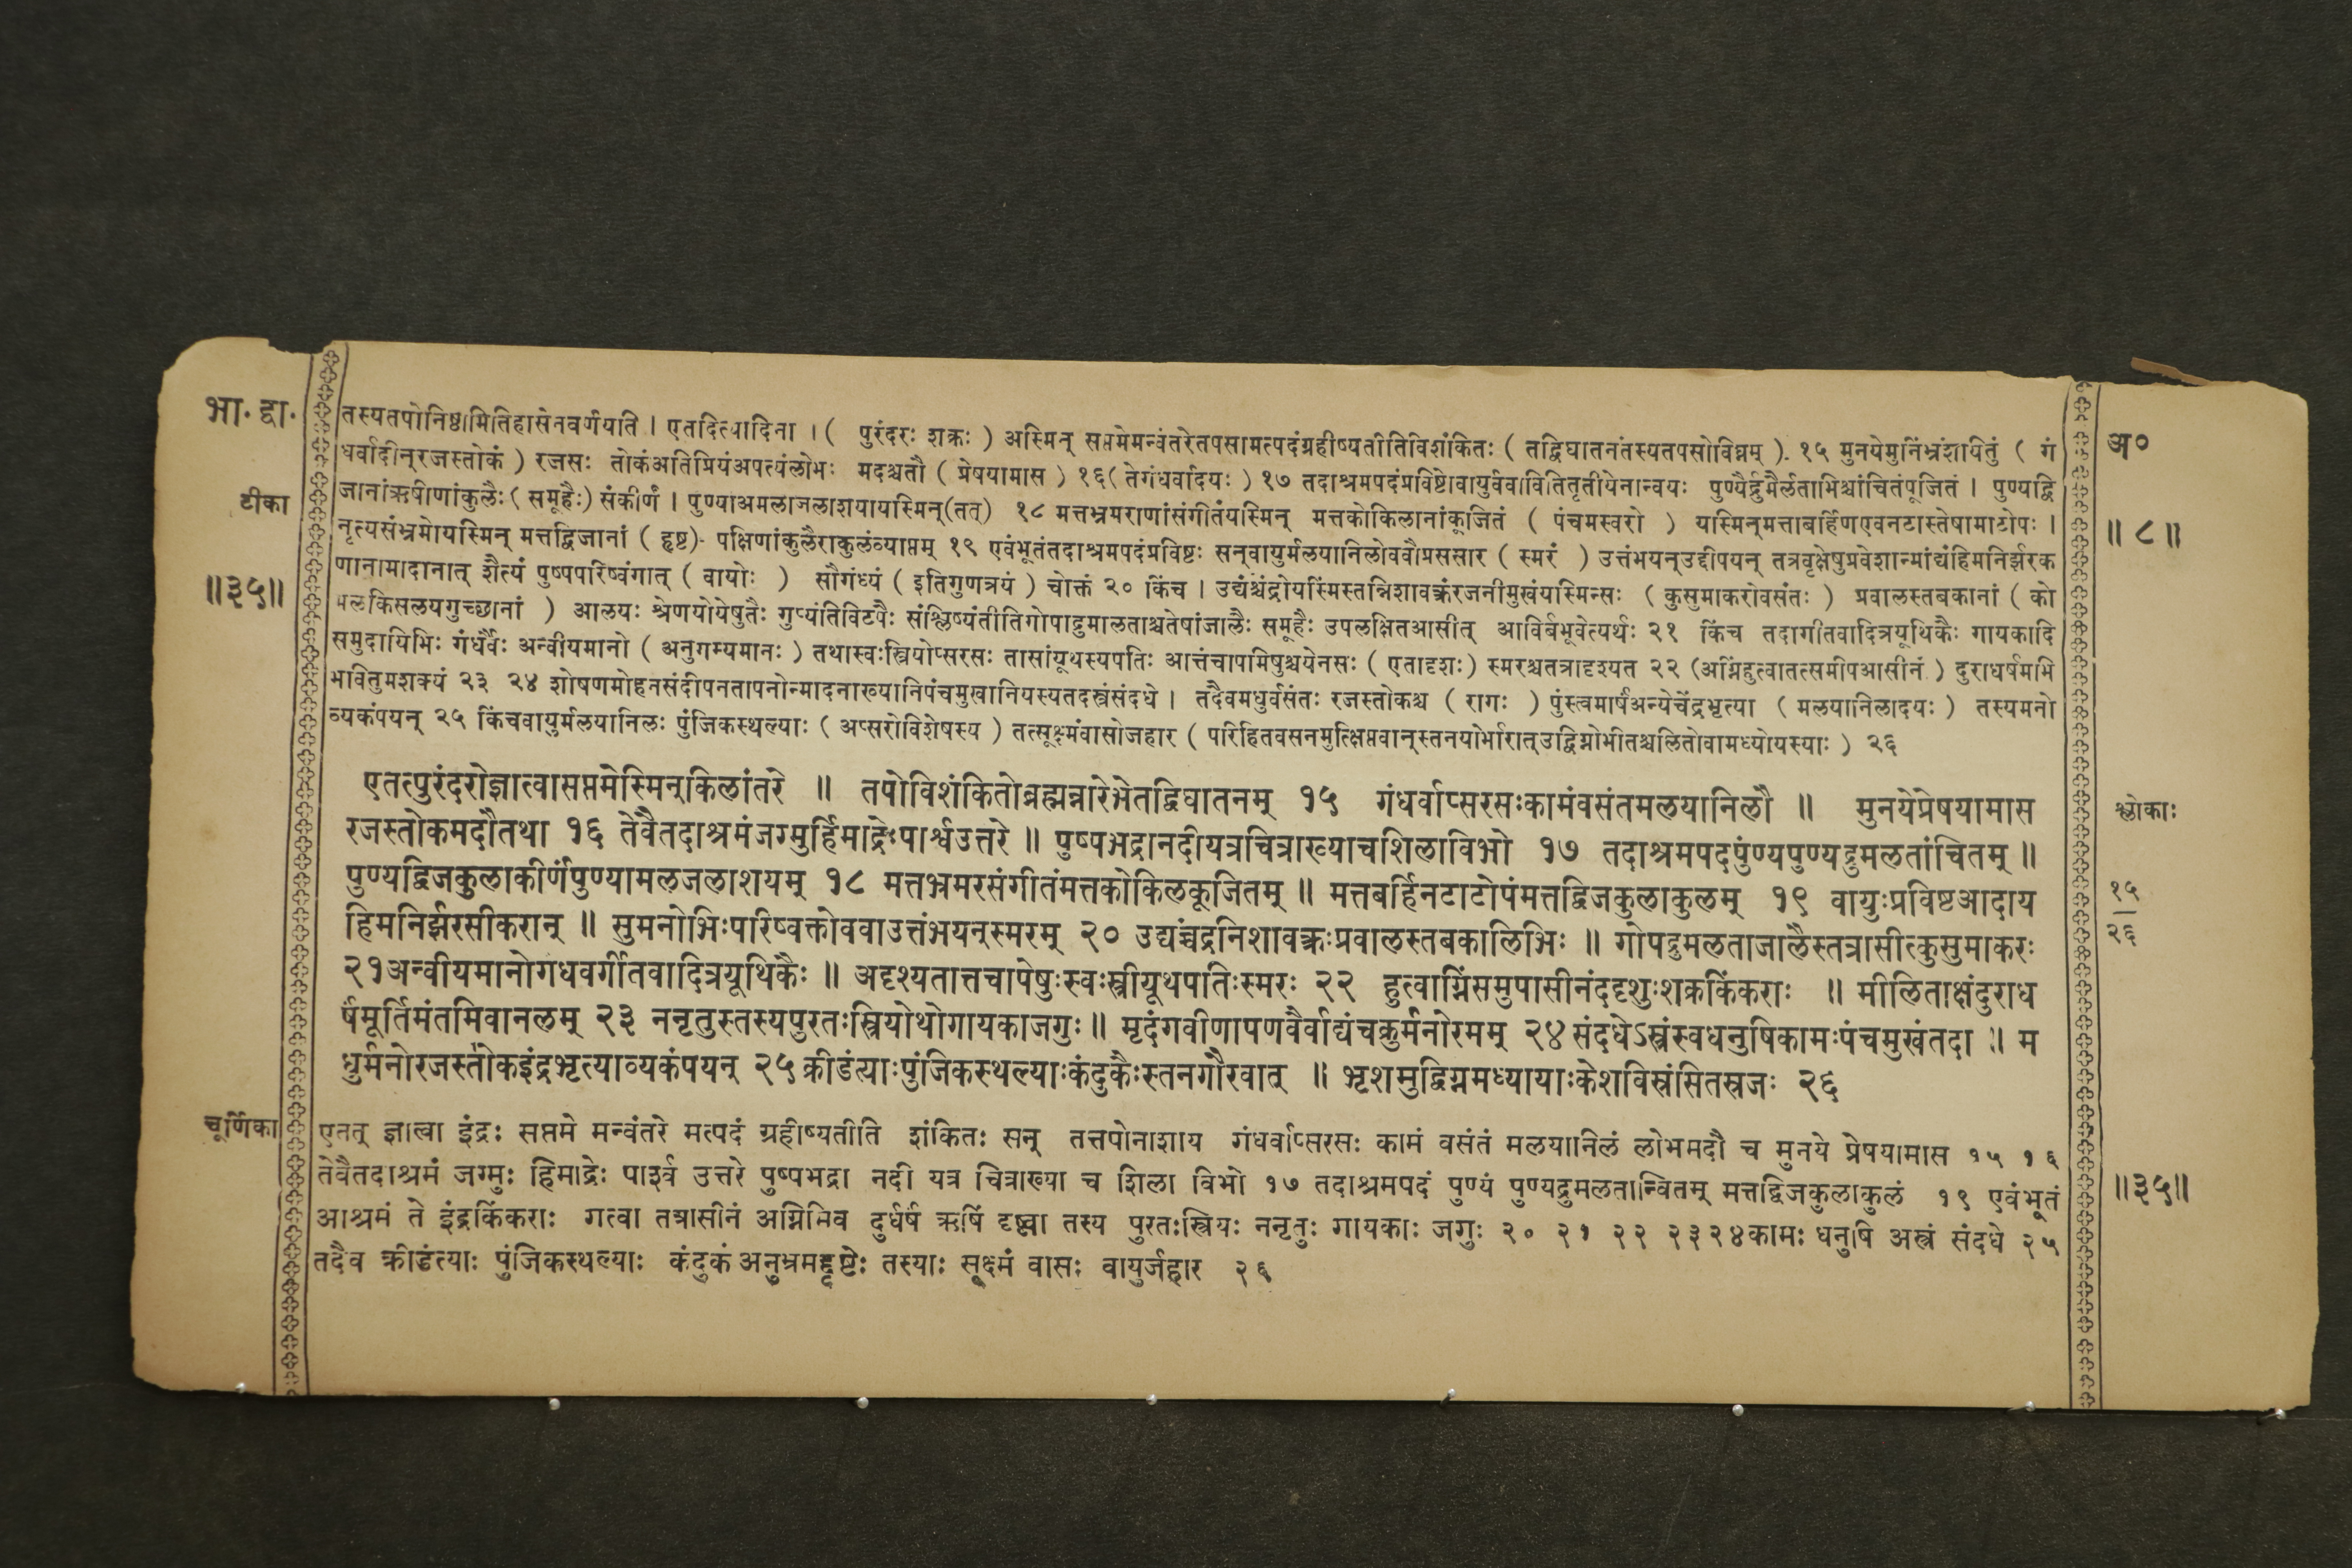 भा. द्वा.
टीका
॥३५॥
तस्यतपोनिष्ठामितिहासेनवर्णयति । एतदित्यादिना । ( पुरंदरः शक्रः ) अस्मिन् सप्तमेमन्वंतरेतपसामत्पदंग्रहीष्यतीतिविशंकितः ( तद्विघातनंतस्यतपसोविघ्नम् ). १५ मुनयेमुनिंभ्रंशयितुं ( गं
धर्वादीन्रजस्तोकं ) रजसः तोकंअतिप्रियंअपत्यंलोभः मदश्चतौ ( प्रेषयामास ) १६( तेगंधर्वादयः ) १७ तदाश्रमपदंप्रविष्टोवायुर्ववावितितृतीयेनान्वयः पुण्यैर्द्रुमैर्लताभिश्चांचितंपूजितं । पुण्यद्वि
जानांऋषीणांकुलैः ( समूहैः ) संकीर्णं । पुण्याअमलाजलाशयायस्मिन्(तत्) १८ मत्तभ्रमराणांसंगीतंयस्मिन् मत्तकोकिलानांकूजितं ( पंचमस्वरो ) यस्मिन्मत्ताबर्हिणएवनटास्तेषामाटोपः ।
नृत्यसंभ्रमोयस्मिन् मत्तद्विजानां ( हृष्ट) पक्षिणांकुलैराकुलंव्याप्तम् १९ एवंभूतंतदाश्रमपदंप्रविष्टः सन्वायुर्मलयानिलोववौप्रससार ( स्मरं ) उत्तंभयन्उद्दीपयन् तत्रवृक्षेषुप्रवेशान्मांद्यंहिमनिर्झरक
णानामादानात् शैत्यं पुष्पपरिष्वंगात् ( वायोः ) सौगंध्यं ( इतिगुणत्रयं ) चोक्तं २० किंच । उद्यंश्चंद्रोयस्मिंस्तन्निशावक्त्रंरजनीमुखंयस्मिन्सः ( कुसुमाकरोवसंतः ) प्रवालस्तबकानां ( को
मलकिसलयगुच्छानां ) आलयः श्रेणयोयेषुतैः गुप्यंतिविटपैः संश्लिष्यंतीतिगोपाद्रुमालताश्चतेषांजालैः समूहैः उपलक्षितआसीत् आविर्बभूवेत्यर्थः २१ किंच तदागीतवादित्रयूथिकैः गायकादि
समुदायिभिः गंधर्वैः अन्वीयमानो ( अनुगम्यमानः ) तथास्वःस्त्रियोप्सरसः तासांयूथस्यपतिः आत्तंचापमिषुश्चयेनसः ( एतादृशः ) स्मरश्चतत्रादृश्यत २२ (अग्निंहुत्वातत्समीपआसीनं ) दुराधर्षमभि
भावितुमशक्यं २३ २४ शोषणमोहनसंदीपनतापनोन्मादनाख्यानिपंचमुखानियस्यतदस्त्रंसंदधे । तदैवमधुर्वसंतः रजस्तोकश्च ( रागः ) पुंस्त्वमार्षंअन्येचेंद्रभृत्या ( मलयानिलादयः ) तस्यमनो
व्यकंपयन् २५ किंचवायुर्मलयानिलः पुंजिकस्थल्याः ( अप्सरोविशेषस्य ) तत्सूक्ष्मंवासोजहार ( परिहितवसनमुत्क्षिप्तवान्स्तनयोर्भारात्उद्विग्नोभीतश्चलितोवामध्योयस्याः ) २६
एतत्पुरंदरोज्ञात्वासप्तमेस्मिन्किलांतरे ॥ तपोविशंकितोब्रह्मन्नारेभेतद्विघातनम् १५ गंधर्वाप्सरसःकामंवसंतमलयानिलौ ॥ मुनयेप्रेषयामास
रजस्तोकमदौतथा १६ तेवैतदाश्रमंजग्मुर्हिमाद्रेःपार्श्वउत्तरे ॥ पुष्पभद्रानदीयत्रचित्राख्याचशिलाविभो १७ तदाश्रमपदंपुण्यंपुण्यद्रुमलतांचितम् ॥
पुण्यद्विजकुलाकीर्णंपुण्यामलजलाशयम् १८ मत्तभ्रमरसंगीतंमत्तकोकिलकूजितम् ॥ मत्तबर्हिनटाटोपंमत्तद्विजकुलाकुलम् १९ वायुःप्रविष्टआदाय
हिमनिर्झरसीकरान् ॥ सुमनोभिःपरिष्वक्तोववाउत्तंभयन्स्मरम् २० उद्यच्चंद्रनिशावक्त्रःप्रवालस्तबकालिभिः ॥ गोपद्रुमलताजालैस्तत्रासीत्कुसुमाकरः
२१अन्वीयमानोगंधर्वैर्गीतवादित्रयूथिकैः ॥ अदृश्यतात्तचापेषुःस्वःस्त्रीयूथपतिःस्मरः २२ हुत्वाग्निंसमुपासीनंददृशुःशक्रकिंकराः ॥ मीलिताक्षंदुराध
र्षंमूर्तिमंतमिवानलम् २३ ननृतुस्तस्यपुरतःस्त्रियोथोगायकाजगुः ॥ मृदंगवीणापणवैर्वाद्यंचक्रुर्मनोरमम् २४ संदधेऽस्त्रंस्वधनुषिकामःपंचमुखंतदा ॥ म
धुर्मनोरजस्तोकइंद्रभृत्याव्यकंपयन् २५ क्रीडंत्याःपुंजिकस्थल्याःकंदुकैःस्तनगौरवात् ॥ भृशमुद्विग्नमध्यायाःकेशविस्रंसितस्रजः २६
चूर्णिका
एतत् ज्ञात्वा इंद्रः सप्तमे मन्वंतरे मत्पदं ग्रहीष्यतीति शंकितः सन् तत्तपोनाशाय गंधर्वाप्सरसः कामं वसंतं मलयानिलं लोभमदौ च मुनये प्रेषयामास १५ १६
तेवैतदाश्रमं जग्मुः हिमाद्रेः पार्श्व उत्तरे पुष्पभद्रा नदी यत्र चित्राख्या च शिला विभो १७ तदाश्रमपदं पुण्यं पुण्यद्रुमलतान्वितम् मत्तद्विजकुलाकुलं १९ एवंभूतं
आश्रमं ते इंद्रकिंकराः गत्वा तत्रासीनं अग्निमिव दुर्धर्षं ऋषिं दृष्ट्वा तस्य पुरतःस्त्रियः ननृतुः गायकाः जगुः २० २१ २२ २३२४कामः धनुषि अस्त्रं संदधे २५
तदैव क्रीडंत्याः पुंजिकस्थल्याः कंदुकं अनुभ्रमद्दृष्टेः तस्याः सूक्ष्मं वासः वायुर्जहार २६
अ०
॥ ८ ॥
श्लोकाः
१५
२६
॥३५॥